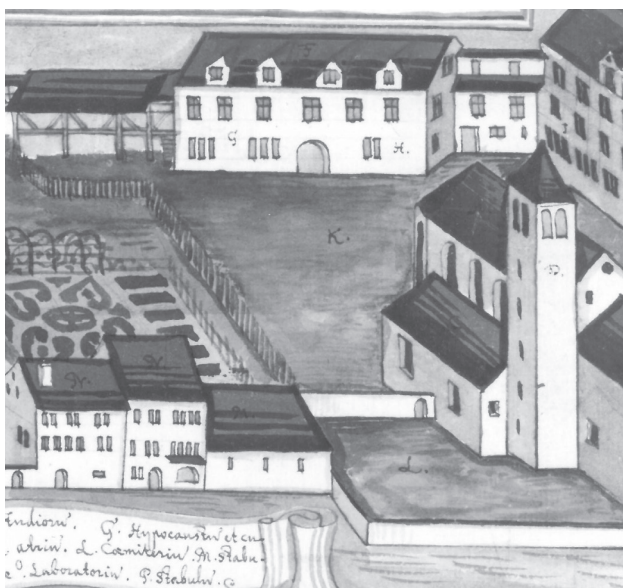 F
G
H.
I
K.
N.
N.
M.
L.
G. Hypocaustū et cu-
atriū. L. Cœmiteriū. M. Stabu-
Laboratoriū. P. Stabulū.